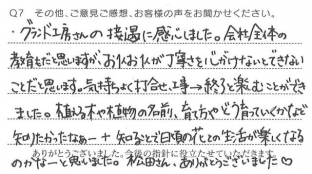 Q7 その他、ご意見ご感想、お客様の声をお聞かせください。
・グランド工房さんの接遇に感心しました。会社全体の
教育もだと思いますが、お1人お1人が丁寧さを心がけないとできない
ことだと思います。気持ちよく打合せ、工事→終了と楽むことができ
ました。植える木や植物の名前、育て方やどう育っていくかなど
知りたかったなぁー+知ることで日頃の花との生活が楽しくなる
のかなーと思いました。松田さん、ありがとうございました♡
ありがとうございました。今後の指針に役立たせていただきます。